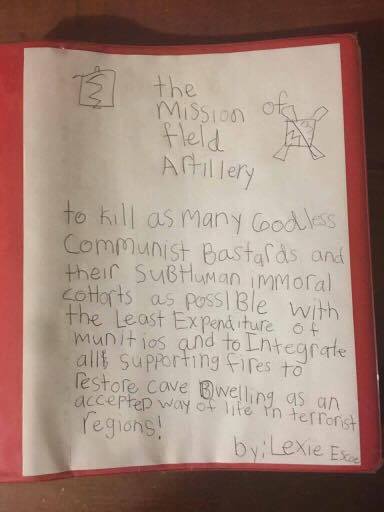 the
Mission of
field
Artillery
to kill as many Godless
Communist Bastards and
their SubHuman immoral
coHorts as possIble with
the Least Expenditure of
munitios and to Integrate
all supporting fires to
restore cave Dwelling as an
accepted way of life in terrorist
regions!
by; Lexie